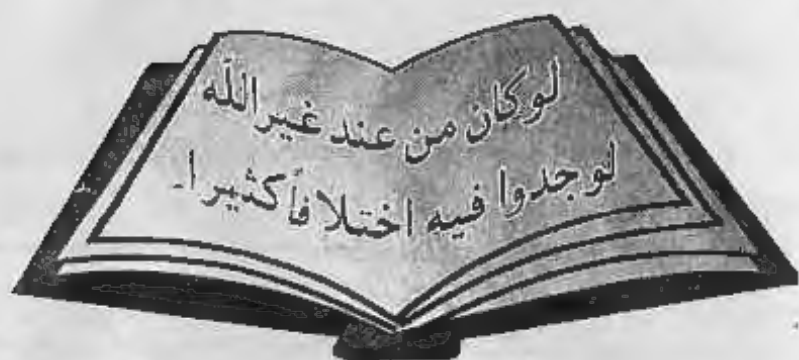 لو كان من عند غير الله
لوجدوا فيه اختلافاً كثيرا.